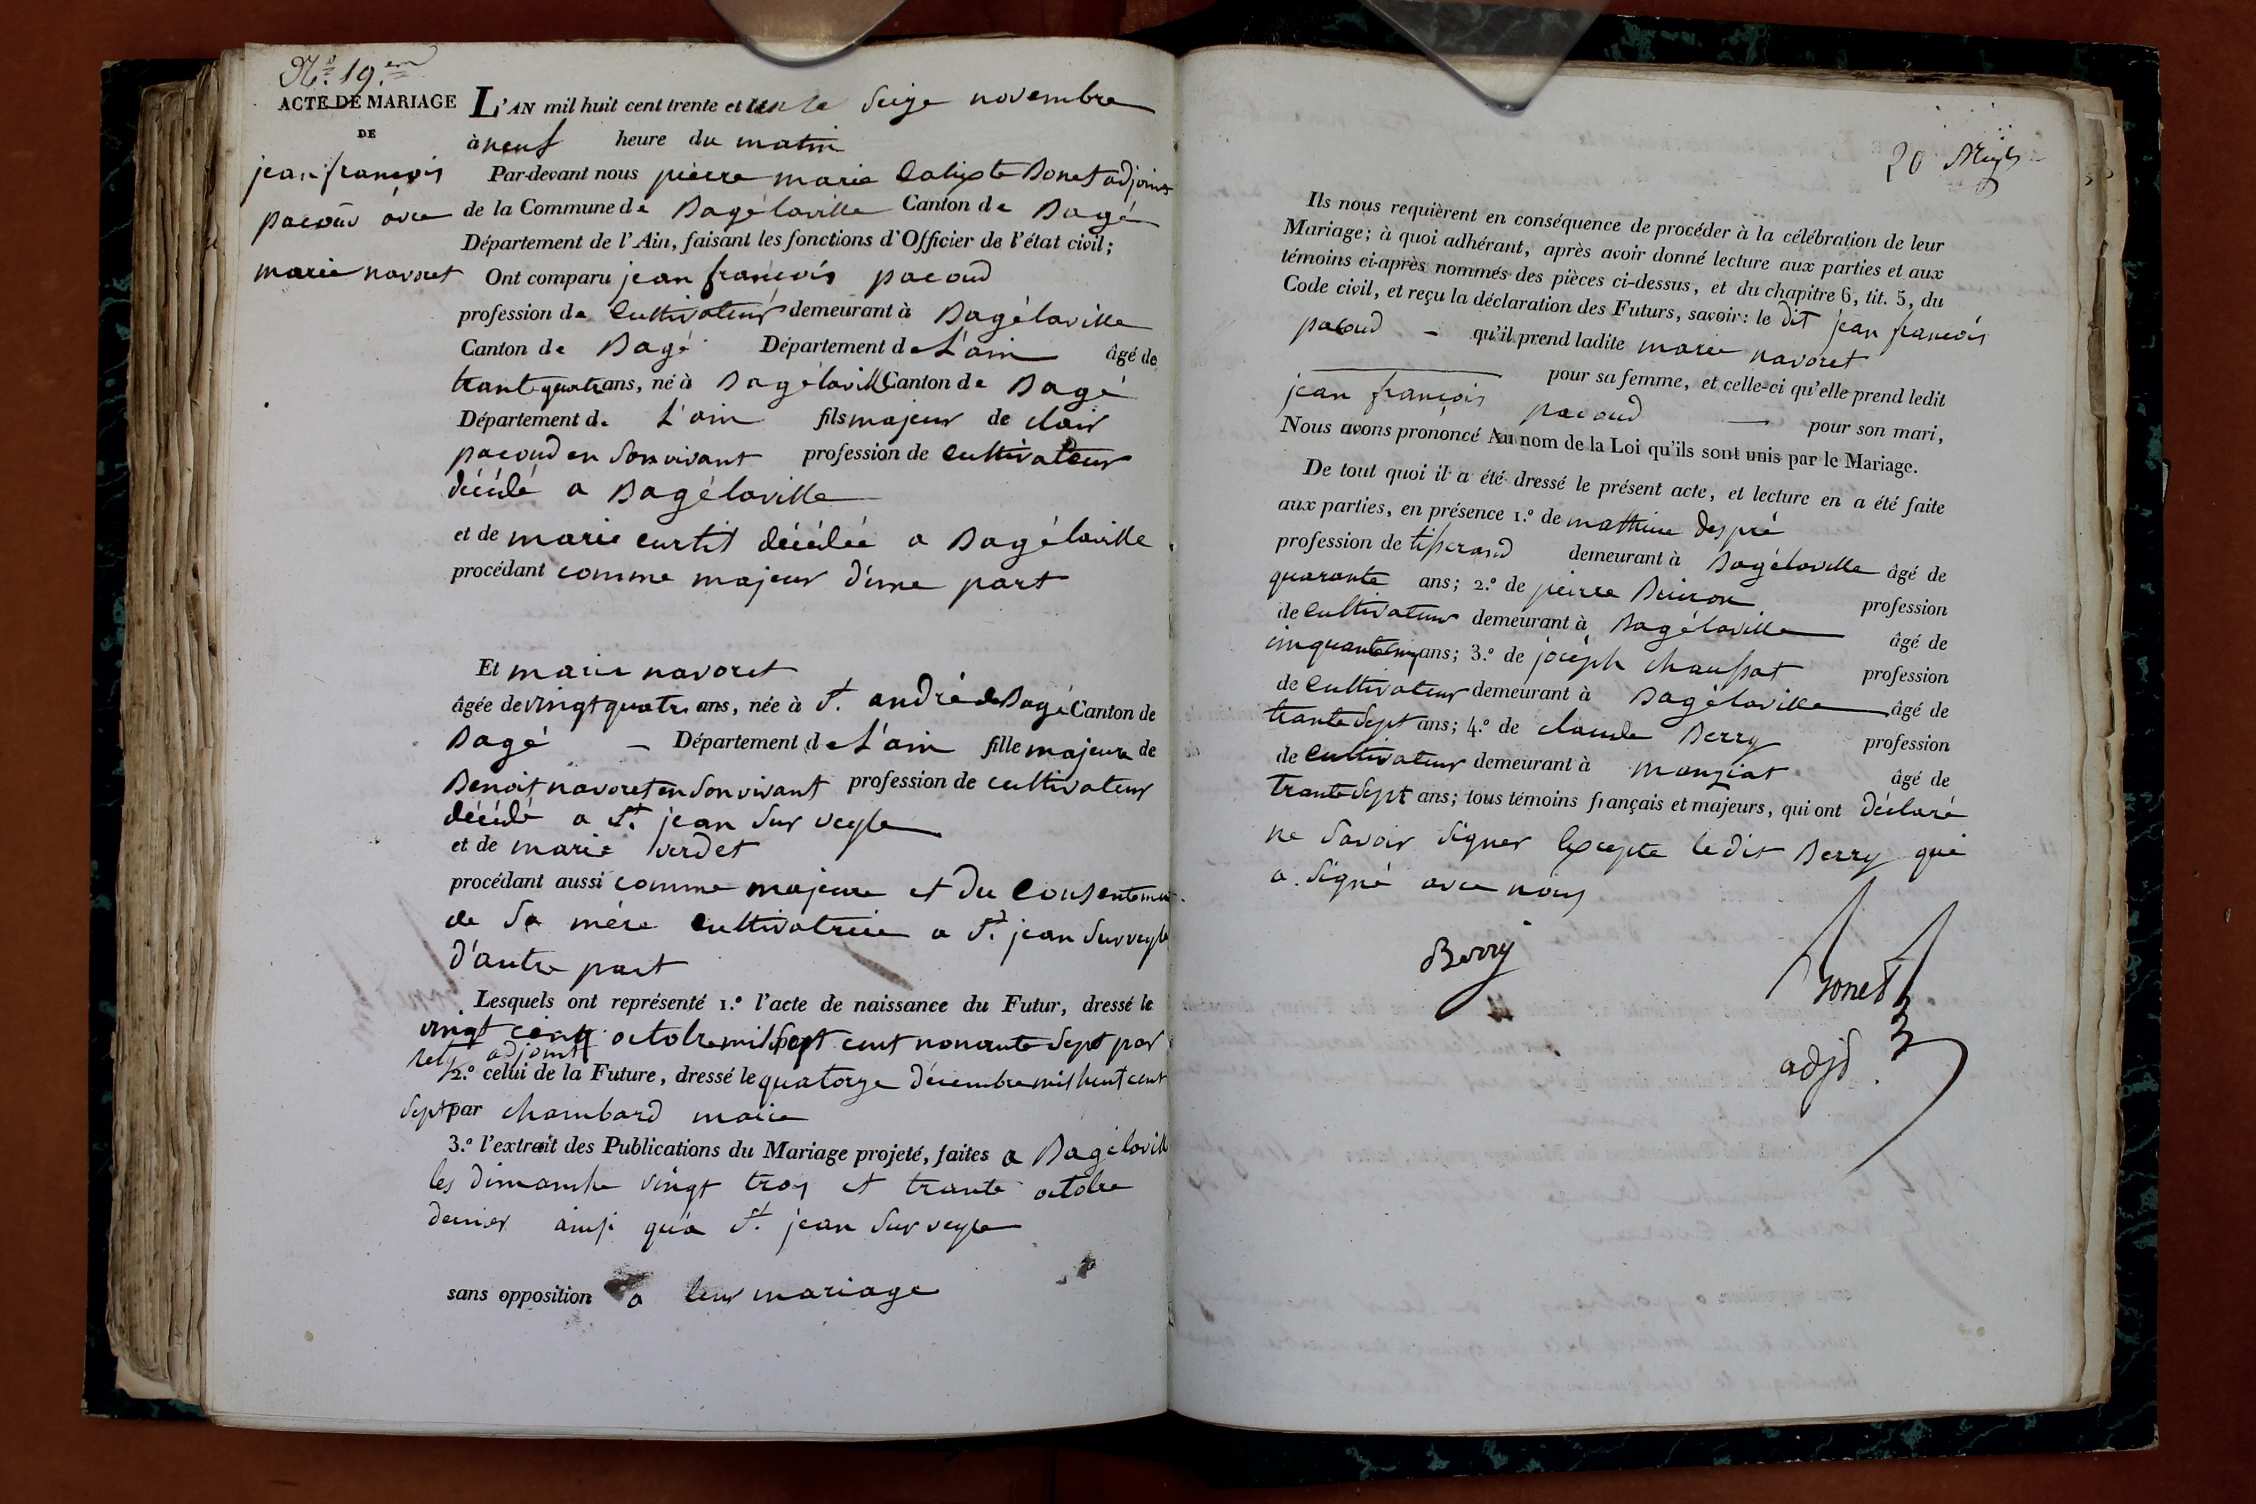 N.o 19.em
ACTE DE MARIAGE
DE
jean françois
pacoud avec
marie navoret
L'AN mil huit cent trente et un le seize novembre
à neuf heure du matin
Par-devant nous pierre marie Calixte Bonet adjoint
de la Commune de Bagélaville Canton de Bagé
Département de l'Ain, faisant les fonctions d'Officier de l'état civil;
Ont comparu jean françois pacoud
profession de Cultivateur demeurant à Bagélaville
Canton de Bagé Département de L'ain âgé de
trante quatre ans, né à Bagélaville Canton de Bagé
Département de L'ain fils majeur de clair
pacoud en son vivant profession de cultivateur
décédé a Bagélaville
et de marie curtil décédée a Bagélaville
procédant comme majeur d'une part
Et marie navoret
âgée de vingt quatre ans, née à St. andré de Bagé Canton de
Bagé — Département de L'ain fille majeure de
Benoit navoret en son vivant profession de cultivateur
décédé a St. jean sur veyle
et de marie verdet
procédant aussi comme majeure et du consentement
de sa mère cultivatrice a St. jean sur veyle
d'autre part
Lesquels ont représenté 1.o l'acte de naissance du Futur, dressé le
vingt cinq octobre mil sept cent nonante sept par
adjoint
2.o celui de la Future, dressé le quatorze décembre mil huit cent
sept par chambard maire
3.o l'extrait des Publications du Mariage projeté, faites a Bagélaville
les dimanche vingt troy et trante octobre
dernier ainsi qu'a St. jean sur veyle
sans opposition a leur mariage
20
Ils nous requièrent en conséquence de procéder à la célébration de leur
Mariage; à quoi adhérant, après avoir donné lecture aux parties et aux
témoins ci-après nommés des pièces ci-dessus, et du chapitre 6, tit. 5, du
Code civil, et reçu la déclaration des Futurs, savoir: le dit jean françois
pacoud — qu'il prend ladite marie navoret
pour sa femme, et celle-ci qu'elle prend ledit
jean françois pacoud — pour son mari,
Nous avons prononcé Au nom de la Loi qu'ils sont unis par le Mariage.
De tout quoi il a été dressé le présent acte, et lecture en a été faite
aux parties, en présence 1.o de mathieu despré
profession de tisserand demeurant à Bagélaville âgé de
quarante ans; 2.o de pierre Buiron profession
de cultivateur demeurant à Bagélaville âgé de
cinquante cinq ans; 3.o de joseph chaussat profession
de cultivateur demeurant à Bagélaville âgé de
trante sept ans; 4.o de claude Berry profession
de cultivateur demeurant à manziat âgé de
trante sept ans; tous témoins français et majeurs, qui ont déclaré
ne savoir signer Excepte ledit Berry qui
a signé avec nous
Berry
Bonet
adjt